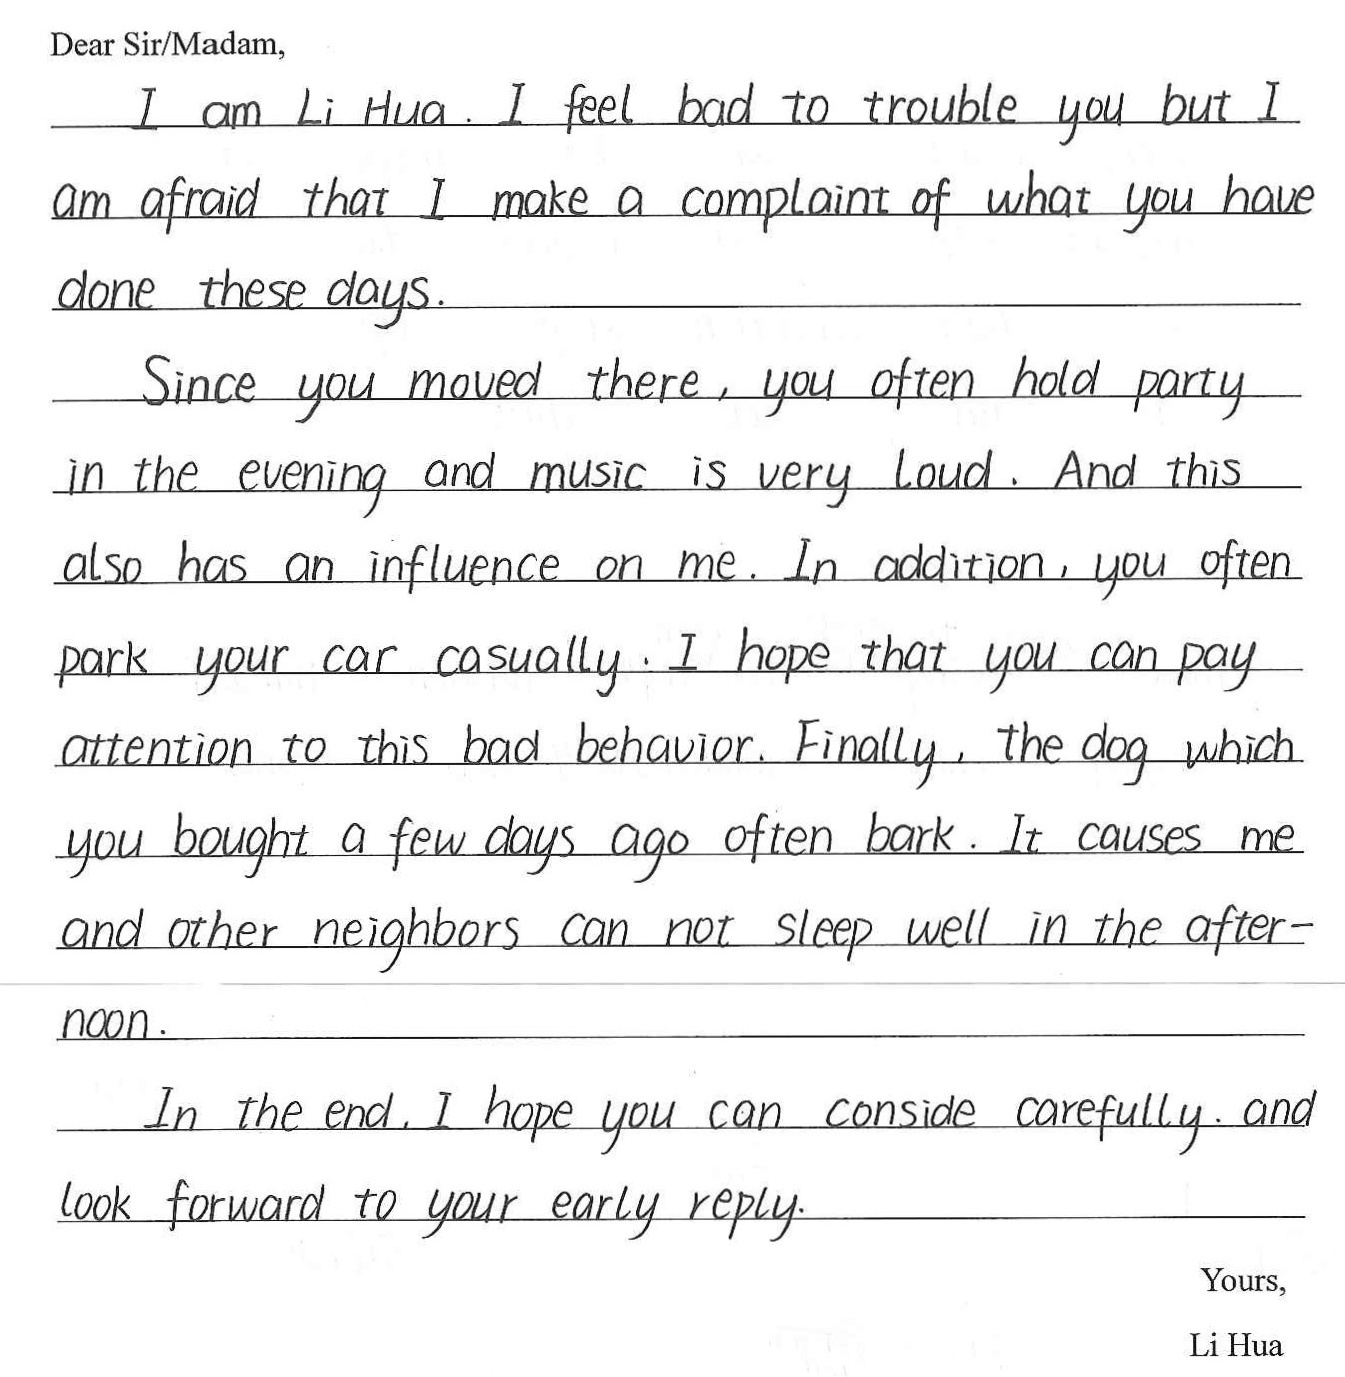 Dear Sir/Madam,
I am Li Hua. I feel bad to trouble you but I
am afraid that I make a complaint of what you have
done these days.
Since you moved there, you often hold party
in the evening and music is very loud. And this
also has an influence on me. In addition, you often
park your car casually. I hope that you can pay
attention to this bad behavior. Finally, the dog which
you bought a few days ago often bark. It causes me
and other neighbors can not sleep well in the after-
noon.
In the end, I hope you can conside carefully. and
look forward to your early reply.
Yours,
Li Hua